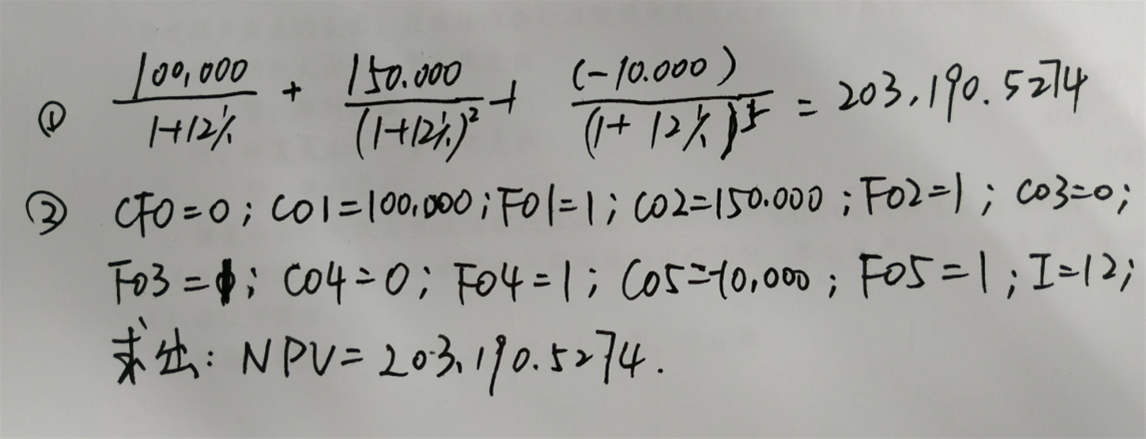 ① 100,000/(1+12%) + 150.000/(1+12%)² + (-10.000)/(1+12%)⁵ = 203,190.5274
② CF0=0; C01=100,000; F01=1; C02=150.000; F02=1; C03=0;
F03=1; C04=0; F04=1; C05=-10,000; F05=1; I=12;
求出: NPV=203,190.5274.